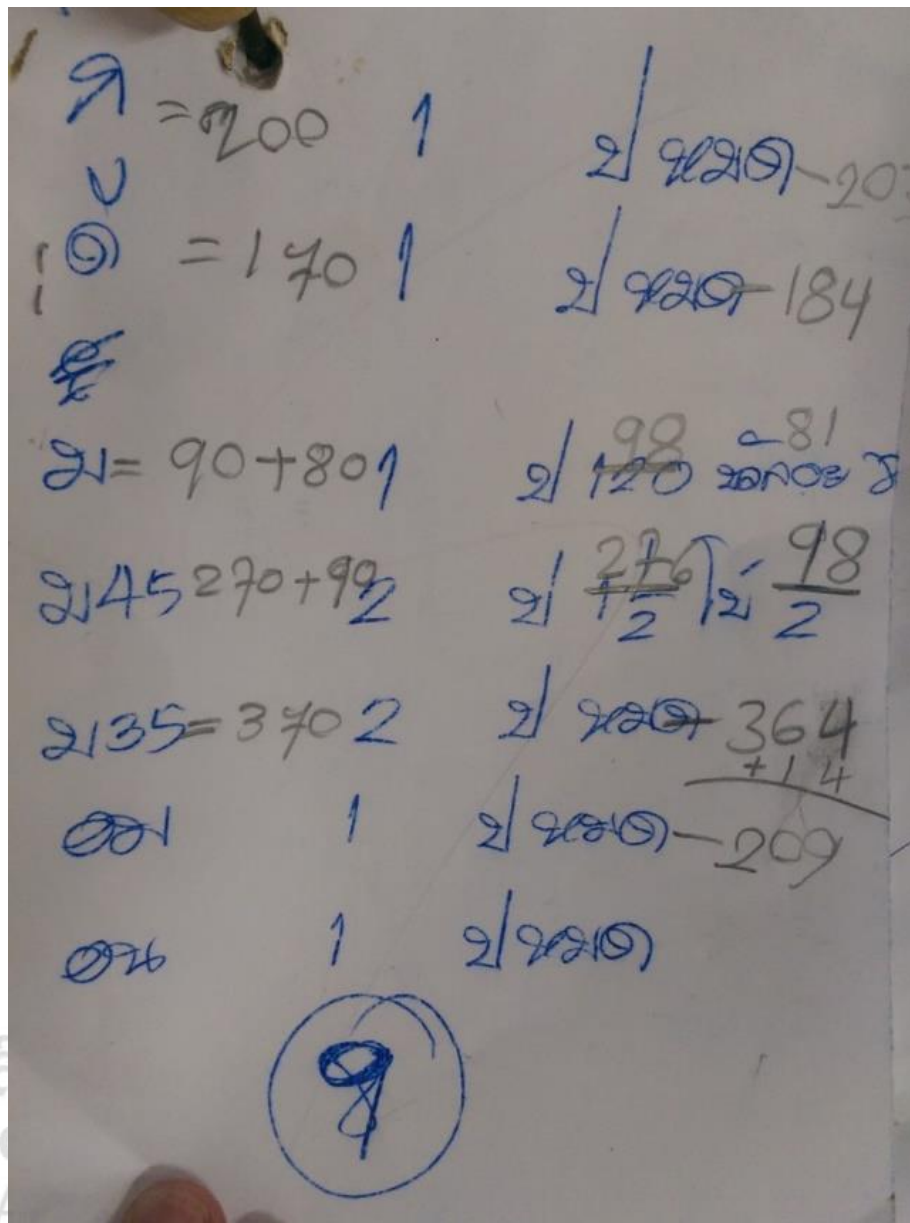 =200 1 ป หมด-203
ด =170 1 ป หมด-184
ม= 90+80 1 ป 120 98 81
ม45 270+98 2 ป 276 2 98 2
ม35=370 2 ป หมด-364
+14
อม 1 ป หมด-209
อน 1 ป หมด